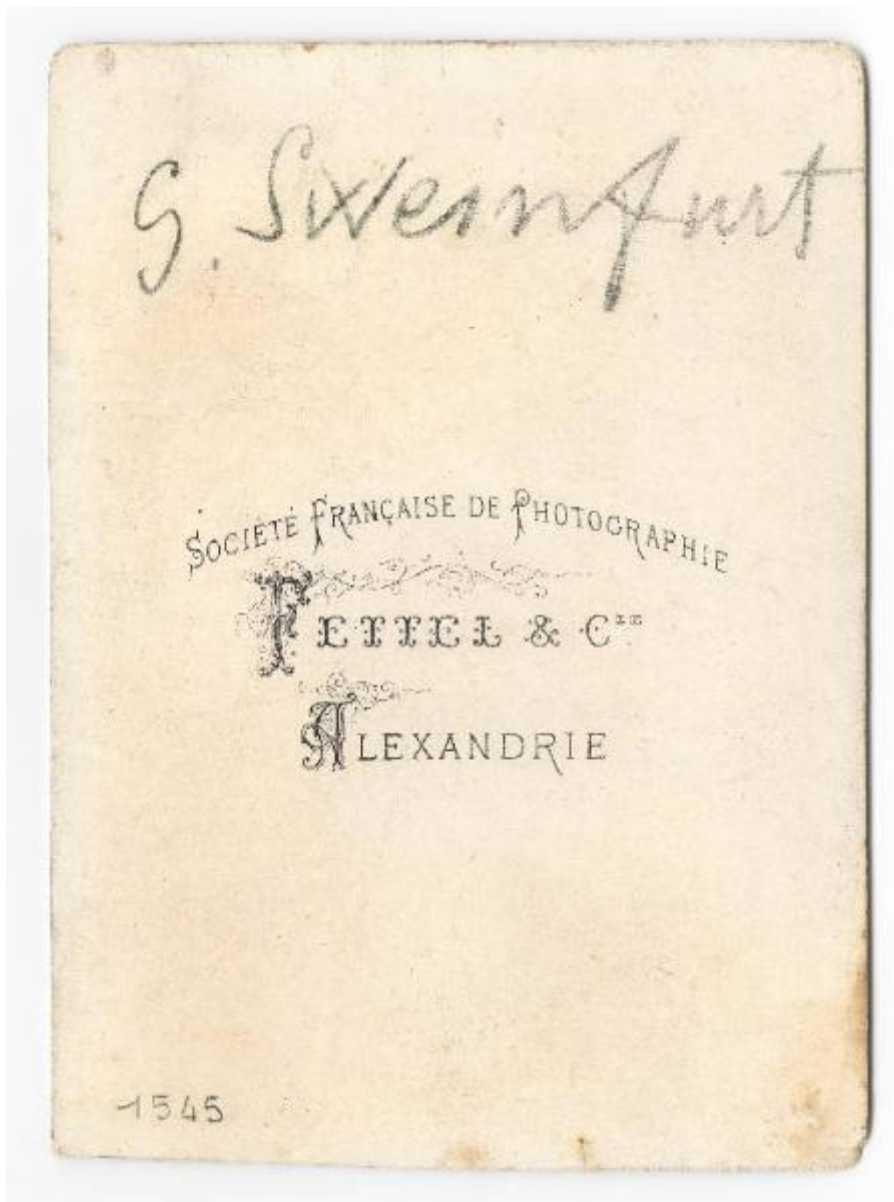 G. Sweinfurt
SOCIÉTÉ FRANÇAISE DE PHOTOGRAPHIE
FETTEL & CIE
ALEXANDRIE
1545